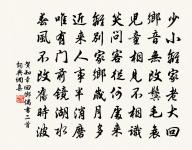 少小離家老大回
鄉音無改鬢毛衰
兒童相見不相識
笑問客從何處來
離別家鄉歲月多
近來人事半消磨
唯有門前鏡湖水
春風不改舊時波
賀知章回鄉偶書二首